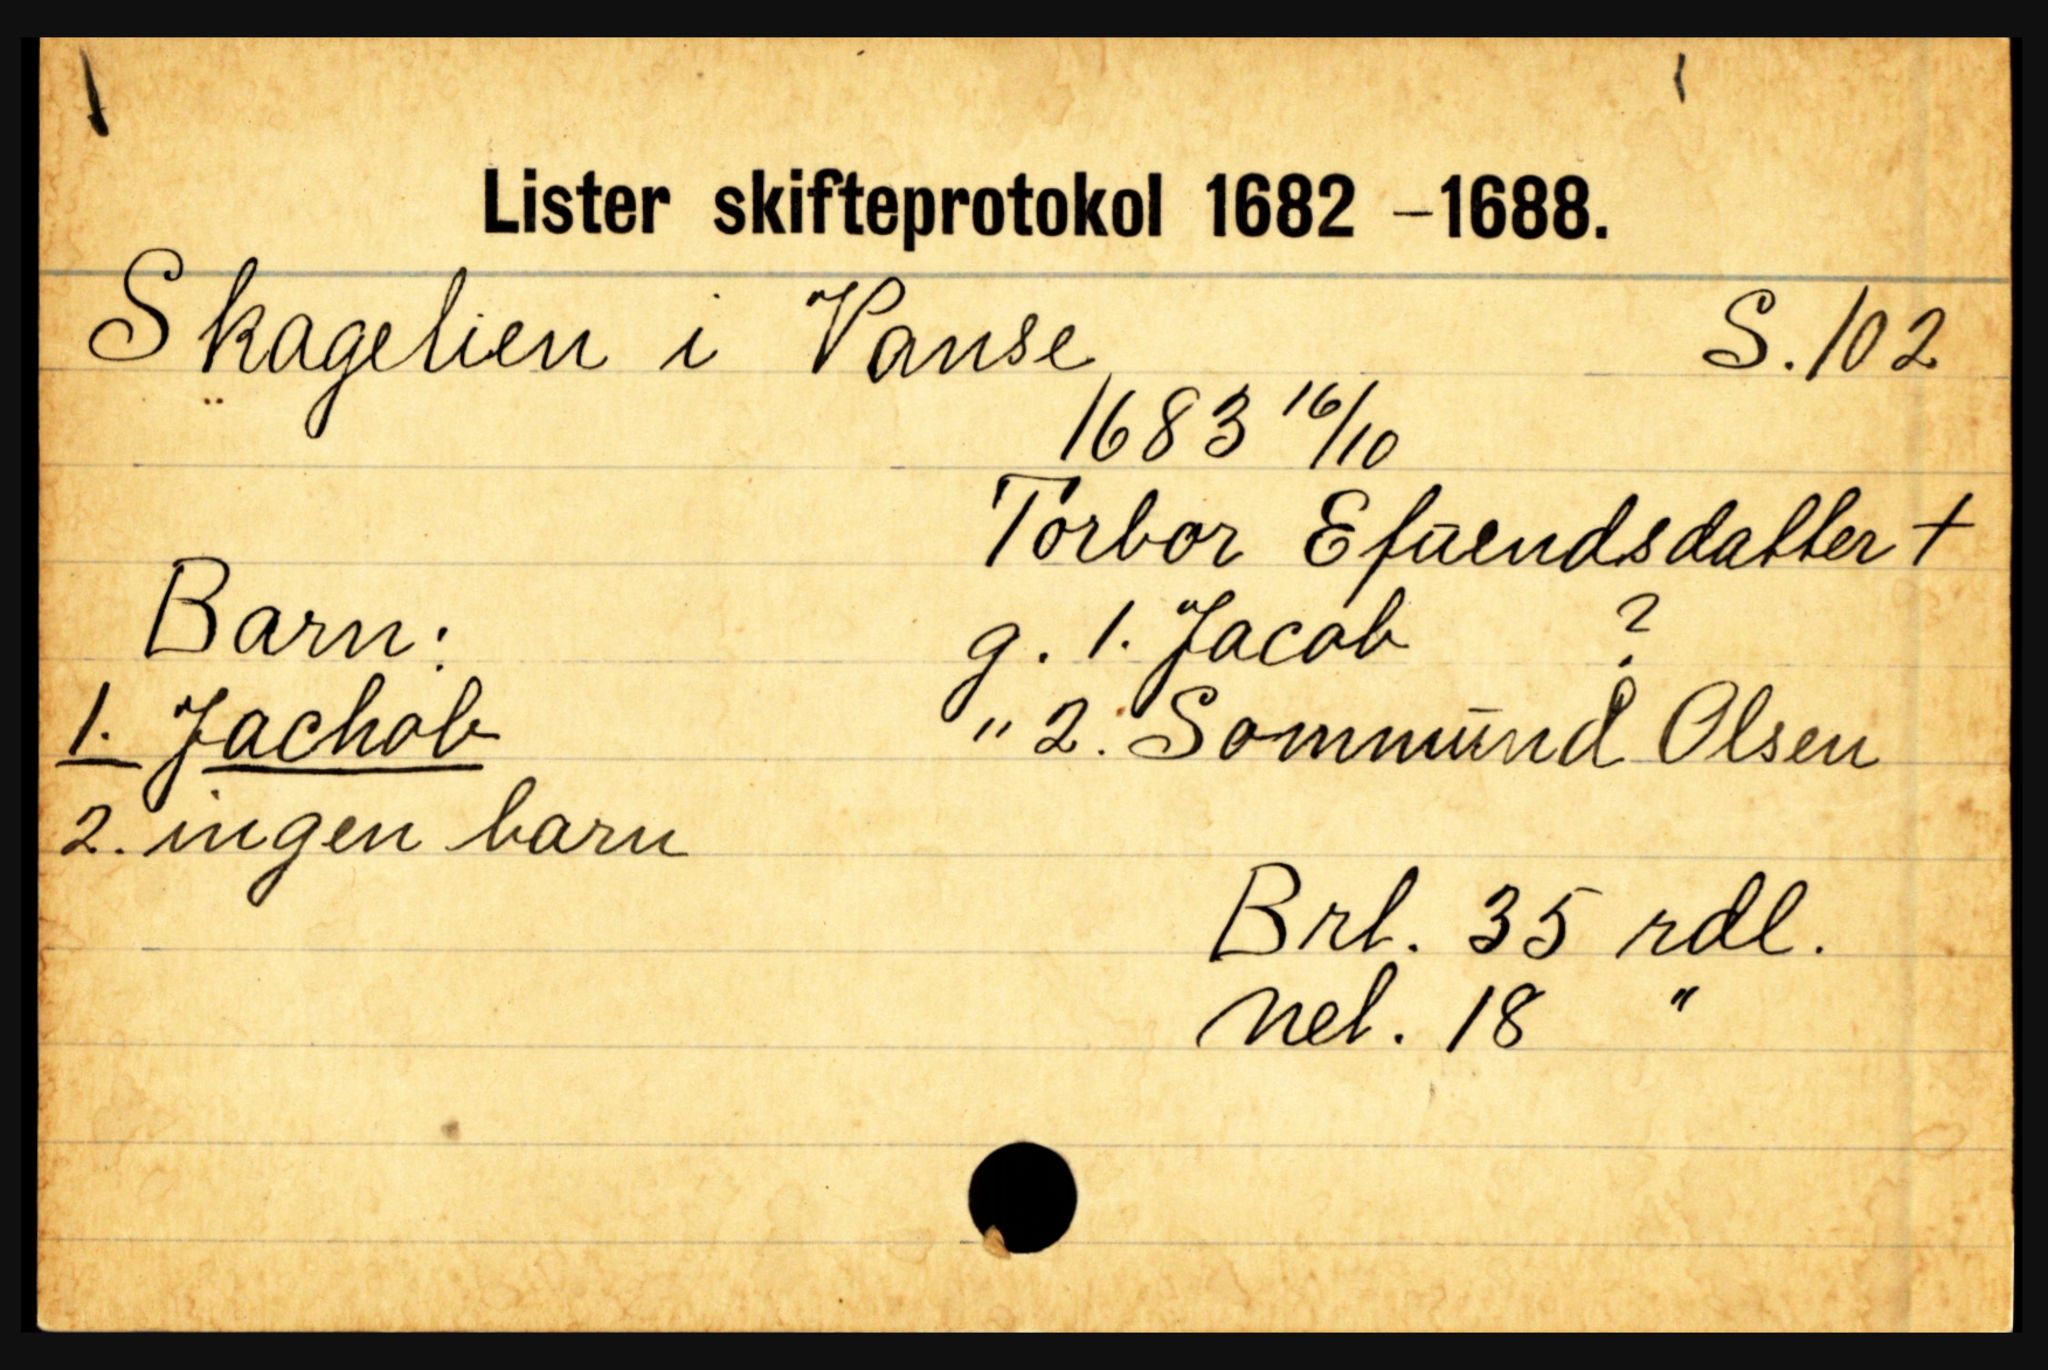 Lister skifteprotokol 1682 –1688.
Skagelien i Vanse S. 102
1683 16/10
Torbor Efuendsdatter +
Barn: g. 1. Jacob ?
1. Jachob " 2. Sommund Olsen
2. ingen barn
Brt. 35 rdl.
Net. 18 "